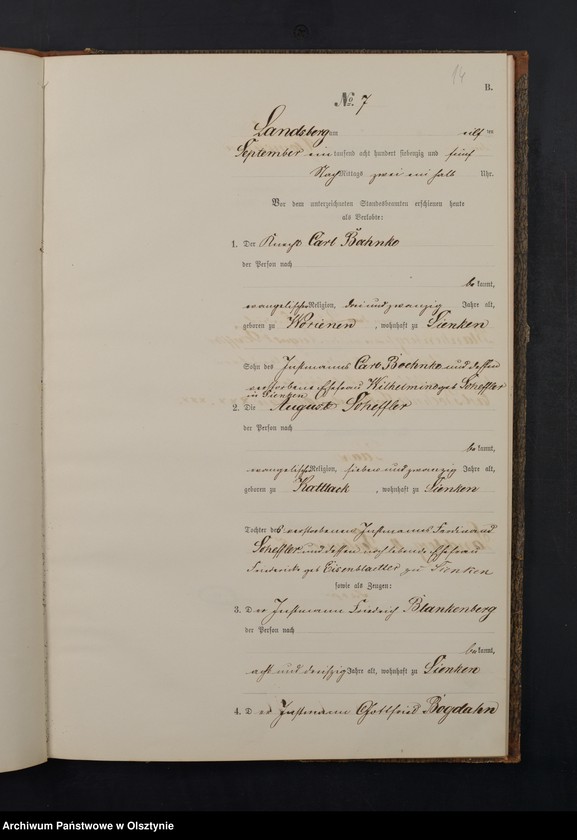 14
B.
No. 7
Landsberg am eilf ten
September ein tausend acht hundert siebenzig und fünf
Nach Mittags zwei ein halb Uhr.
Vor dem unterzeichneten Standesbeamten erschienen heute
als Verlobte:
1. Der Knecht Carl Boehnke
der Person nach
be kannt,
evangelischer Religion, drei und zwanzig Jahre alt,
geboren zu Worienen, wohnhaft zu Sienken
Sohn des Instmanns Carl Boehnke und dessen
verstorbene Ehefrau Wilhelmine geb Scheffler
in Sienken
2. Die August Scheffler
der Person nach
be kannt,
evangelischer Religion, sieben und zwanzig Jahre alt,
geboren zu Kattlack, wohnhaft zu Sienken
Tochter des verstorbenen Instmanns Ferdinand
Scheffler und dessen noch lebende Ehefrau
Friederike geb Eisenblaetter zu Sienken
sowie als Zeugen:
3. D er Instmann Friedrich Blankenberg
der Person nach
be kannt,
acht und dreißig Jahre alt, wohnhaft zu Sienken
4. D er Instmann Gottfried Bogdahn
Archiwum Państwowe w Olsztynie